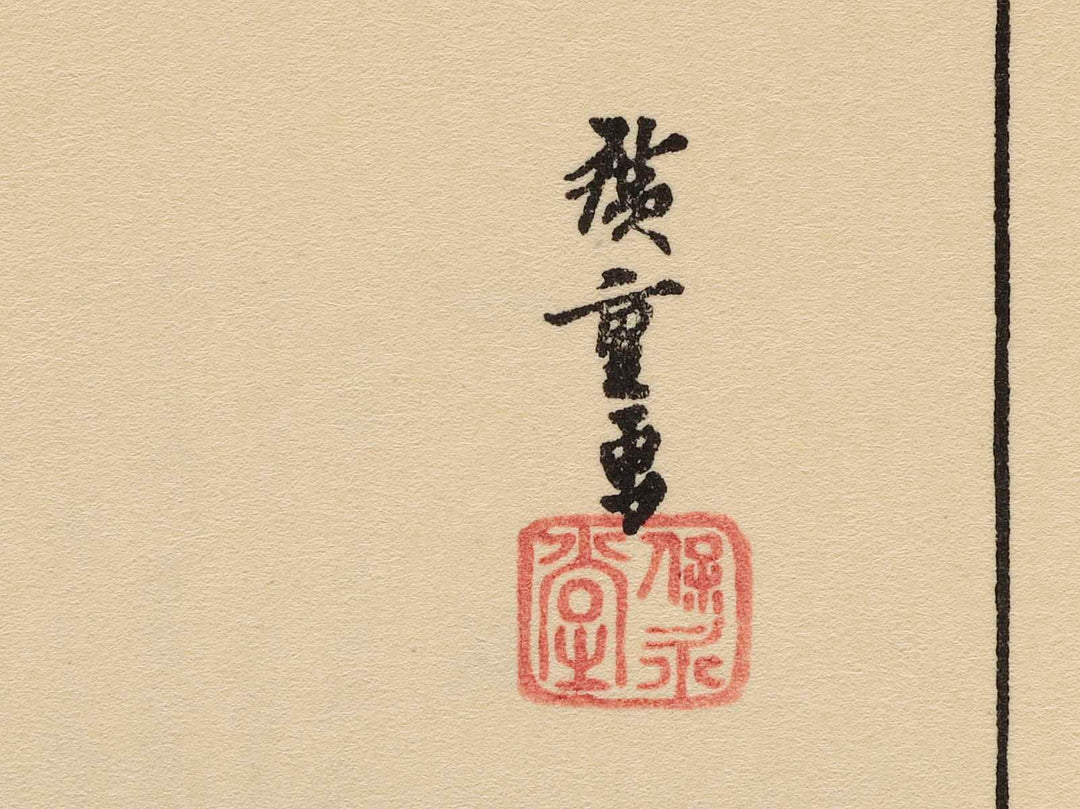 廣重画
保永
堂